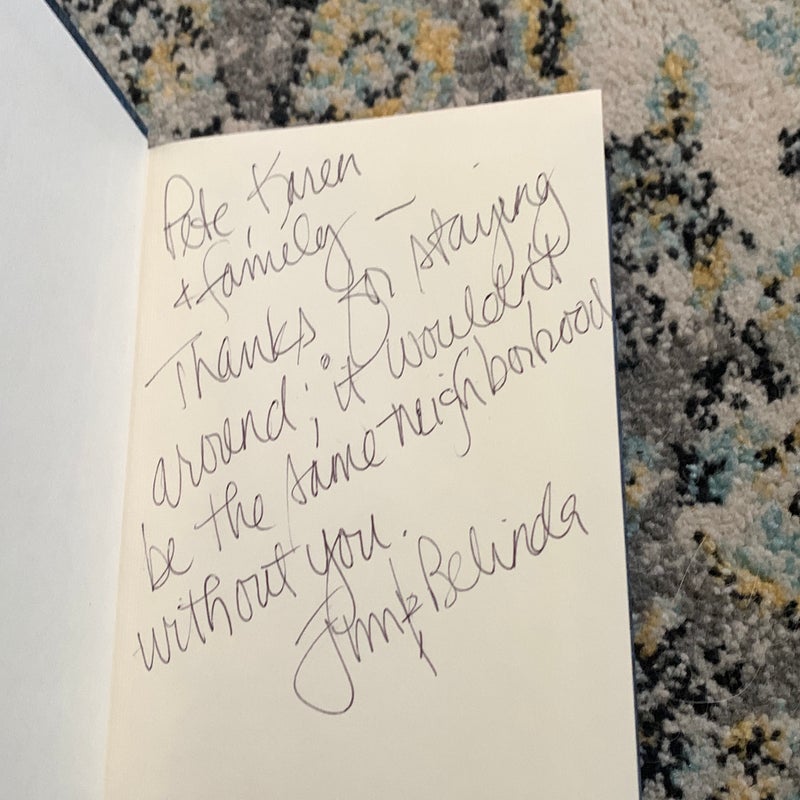 Pete Karen
+ family —
Thanks for staying
around; it wouldn't
be the same neighborhood
without you.
+ Belinda